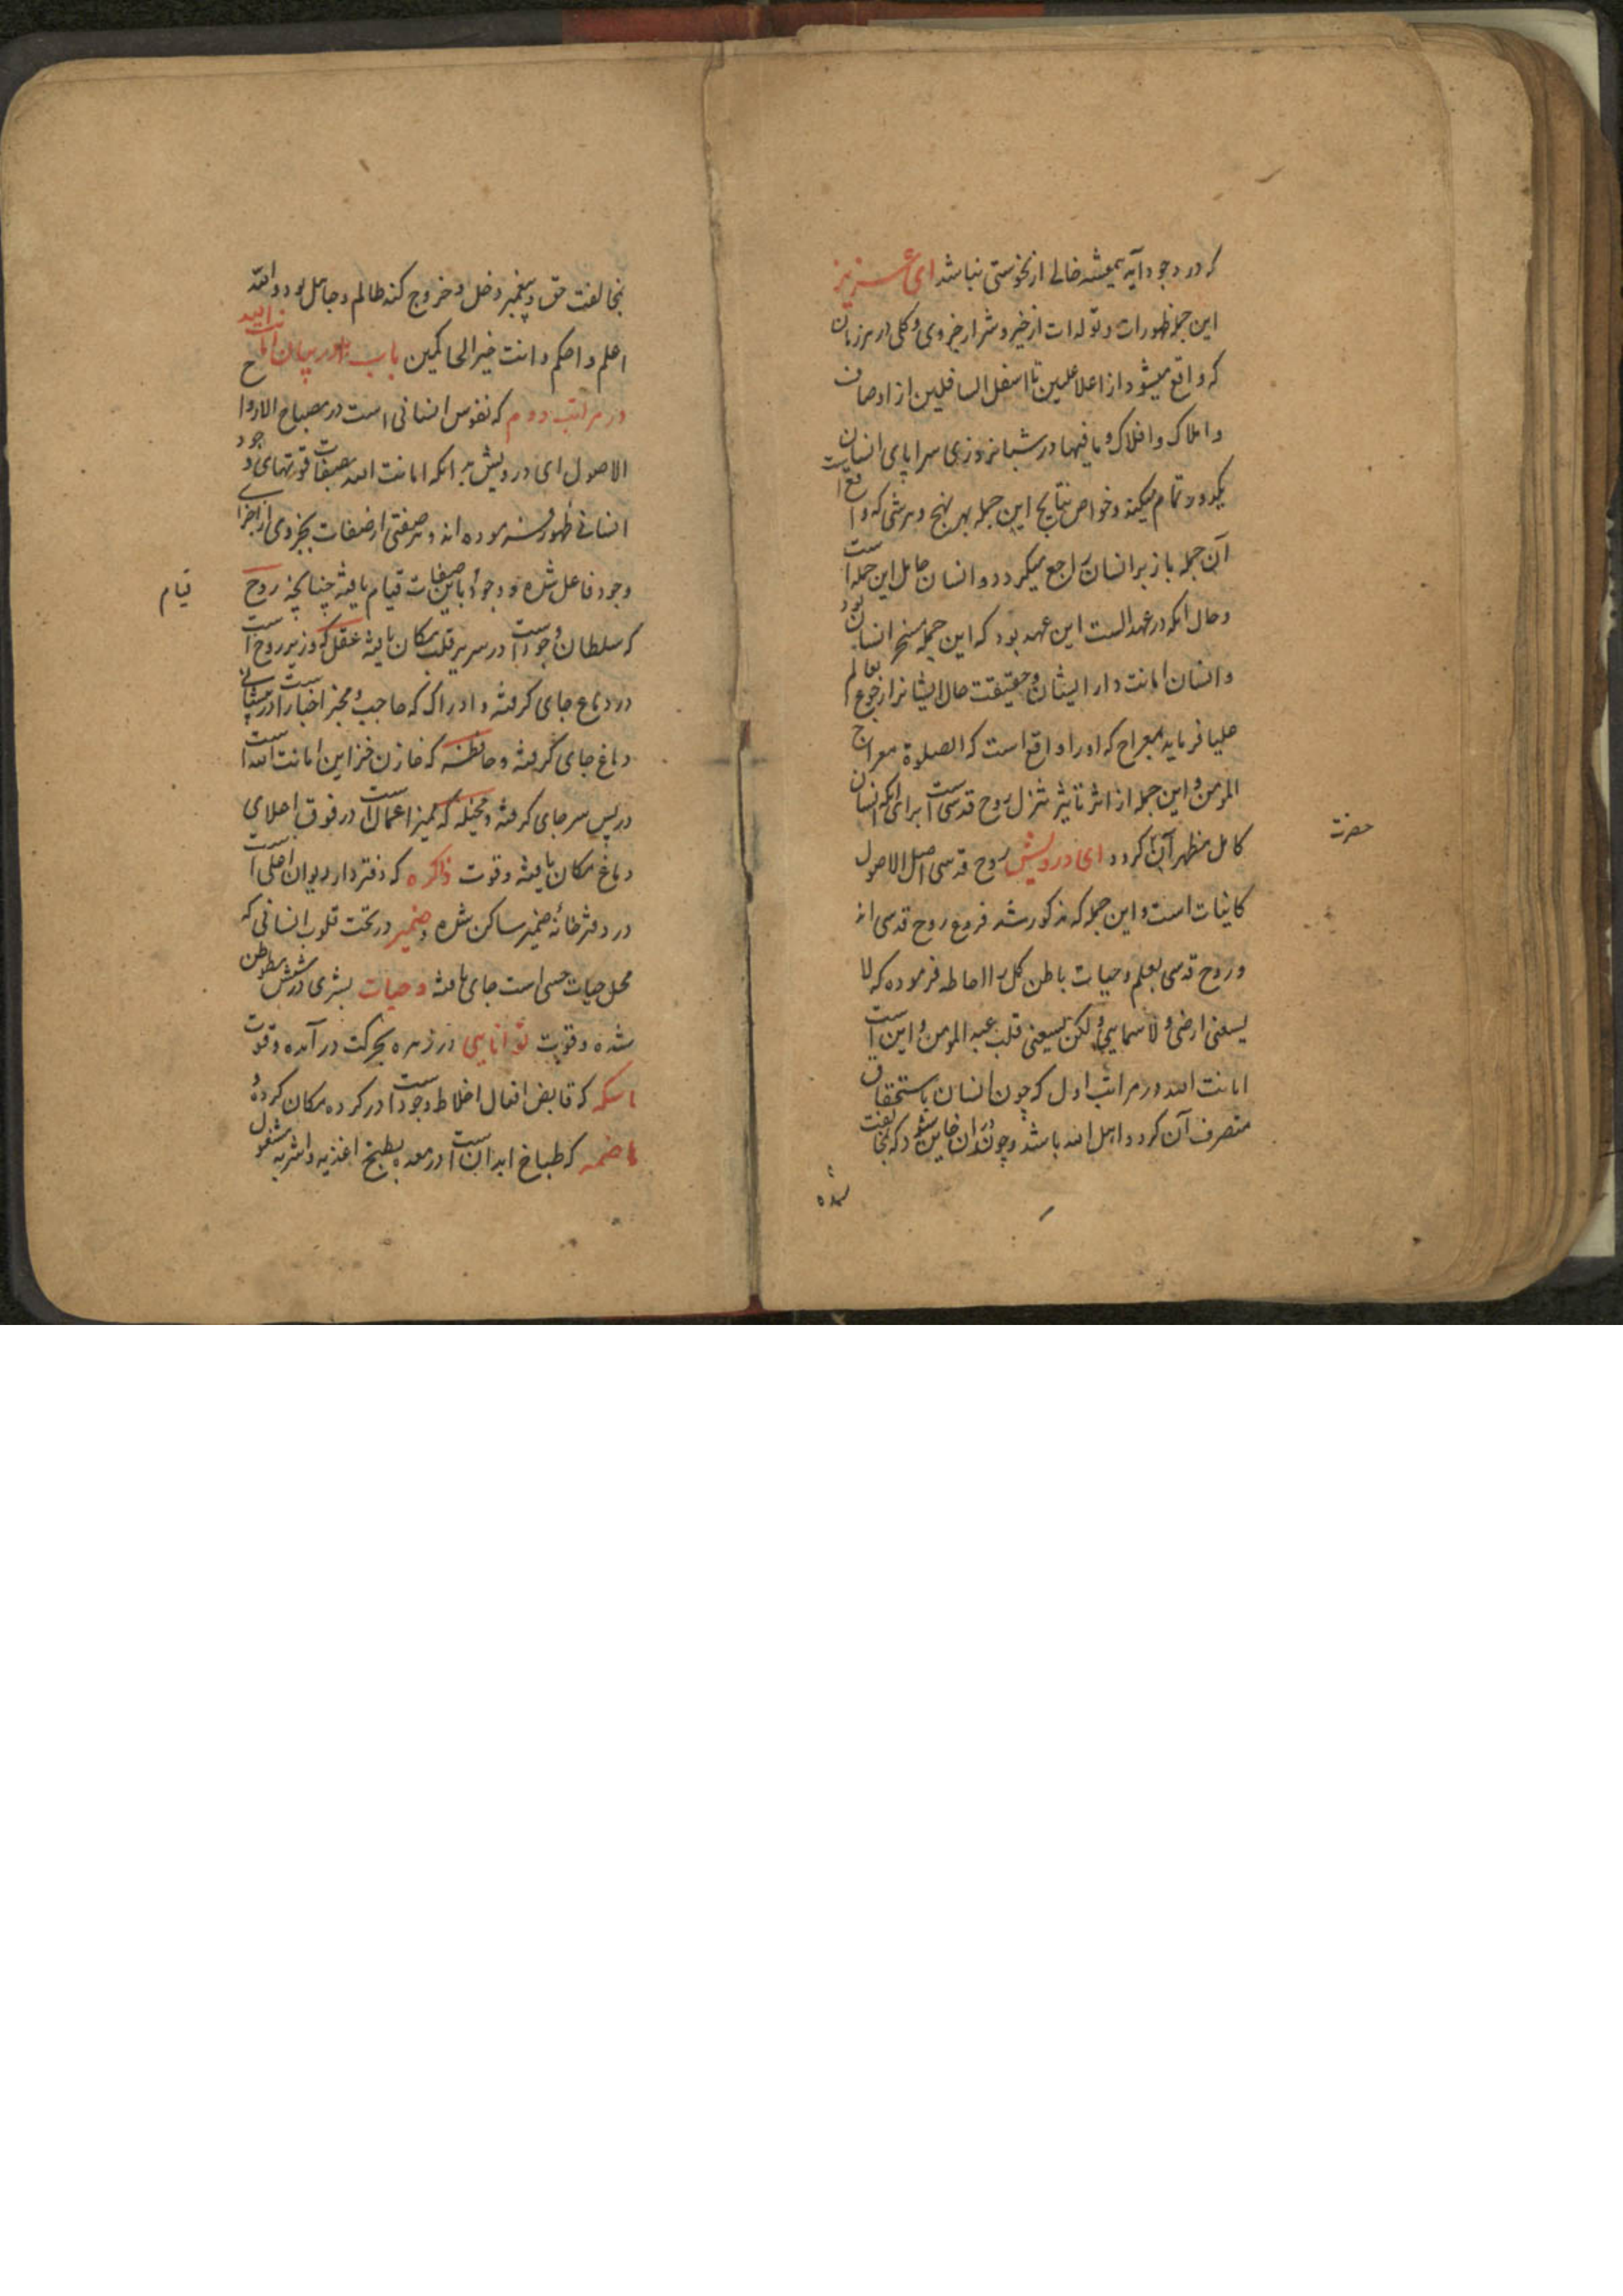 که در وجود آید همیشه خالی از نخوستی نباشد ای عزیز
این جمله ظهورات و تولدات از خیر و شر از جزوی و کلی در هر زمان
که واقع میشود از اعلا علیین تا اسفل السافلین از اوصاف
و املاک و افلاک و ما فیها در شبانروزی سراپای انسان
یکدور تمام میکند و خواص نتایج این جمله بهر نهج و هر شی که واقع است
آن جمله باز بر انسان راجع میکردد و انسان حامل این جمله است
و حال انکه در عهد الست این عهد بود که این جمله مسخر انسان بود
و انسان امانت دار ایشان و حقیقت حال ایشانرا رجوع بعالم
علیا فرماید بمعراج که او را واقع است که الصلوة معراج
المومن و این جمله از اثر تاثیر تنزل روح قدسی است برای انکه انسان
کامل مظهر آن کردد ای درویش روح قدسی اصل الاصول
حضرت
کاینات است و این جمله که مذکور شد فروع روح قدسی اند
و روح قدسی بعلم و حیات باطن کل را احاطه فرموده که لا
یسعنی ارضی و لا سمایی و لکن یسعنی قلب عبد المومن و این است
امانت الله در مراتب اول که چون انسان باستحقاق
متصرف آن کردد اهل الله باشد و چون در آن خاین شود که بمخالفت
بمخالفت حق و پیغمبر دخل و خروج کند ظالم و جاهل بود والله
اعلم و احکم و انت خیر الحاکمین باب در بیان امانت الله
در مراتب دوم که نفوس انسانی است در مصباح الارواح
الاصول ای درویش بدانکه امانت الله بصفات قوتهای وجود
انسانی ظهور فرموده اند و هر صفتی از صفات بجزوی از اجزای
وجود فاعل شده و وجود باین صفات قیام یافته چنانچه روح
قیام
که سلطان وجود است در سریر قلب مکان یافته عقل که وزیر روح است
در دماغ جای کرفته و ادراک که حاجب و مخبر اخبار است در پیشانی
دماغ جای کرفته و حافظه که خازن خزاین امانت الله است
در پس سر جای کرفته و مخیله که ممیز اعمال است در فوق اعلای
دماغ مکان یافته و قوت ذاکره که دفتردار دیوان اعلی است
در دفترخانه ضمیر ساکن شده و ضمیر در تحت قلوب انسانی که
محل حیات حسی است جای یافته و حیات بشری در شش متوطن
شده و قوت توانایی در زهره بحرکت در آمده و قوت
ماسکه که قابض افعال اخلاط وجود است در کرده مکان کرده و
هاضمه که طباخ ابدان است در معده بطبخ اغذیه و اشربه مشغول